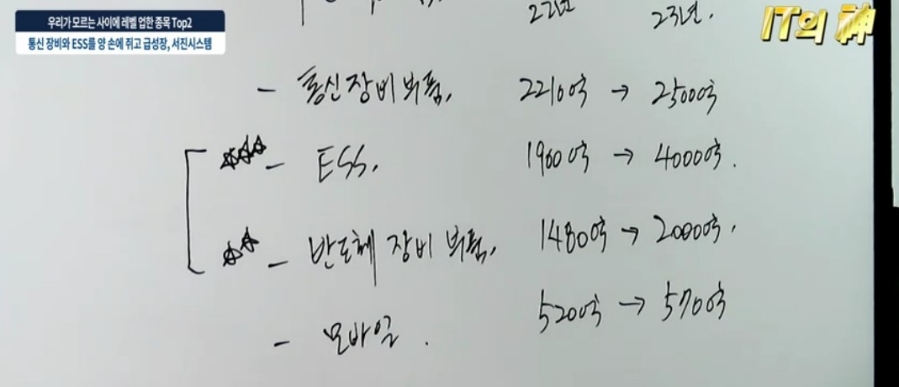 우리가 모르는 사이에 레벨 업한 종목 Top2
통신 장비와 ESS를 양 손에 쥐고 급성장, 서진시스템
IT의 神
22년 23년.
- 통신장비부품, 2210억 → 2500억
- ESS, 1900억 → 4000억.
- 반도체 장비 부품, 1480억 → 2000억.
- 모바일. 520억 → 570억